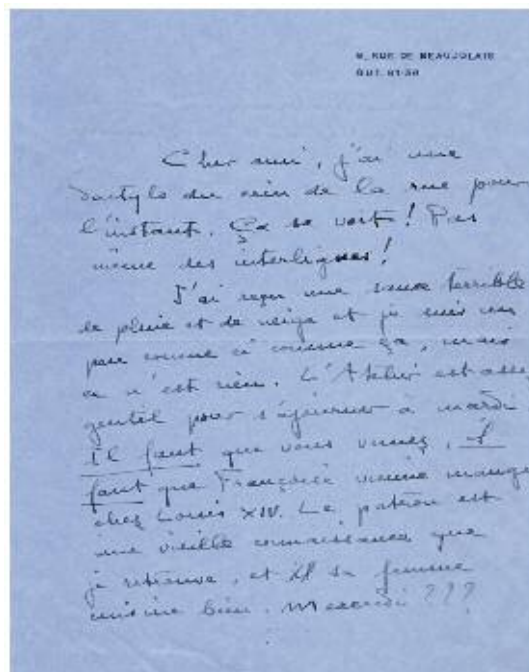 9, RUE DE BEAUJOLAIS
GUT. 91-50
Cher ami, j'ai une
dactylo du coin de la rue pour
l'instant. Ça se voit ! Pas
même des interlignes !
J'ai reçu une sauce terrible
de pluie et de neige et je suis un
peu comme ci comme ça, mais
ce n'est rien. L'Atelier est assez
gentil pour s'ajourner à mardi
Il faut que vous veniez, il
faut que Françoise vienne manger
chez Louis XIV. Le patron est
une vieille connaissance que
je retrouve, et sa femme
cuisine bien. Mercredi ???